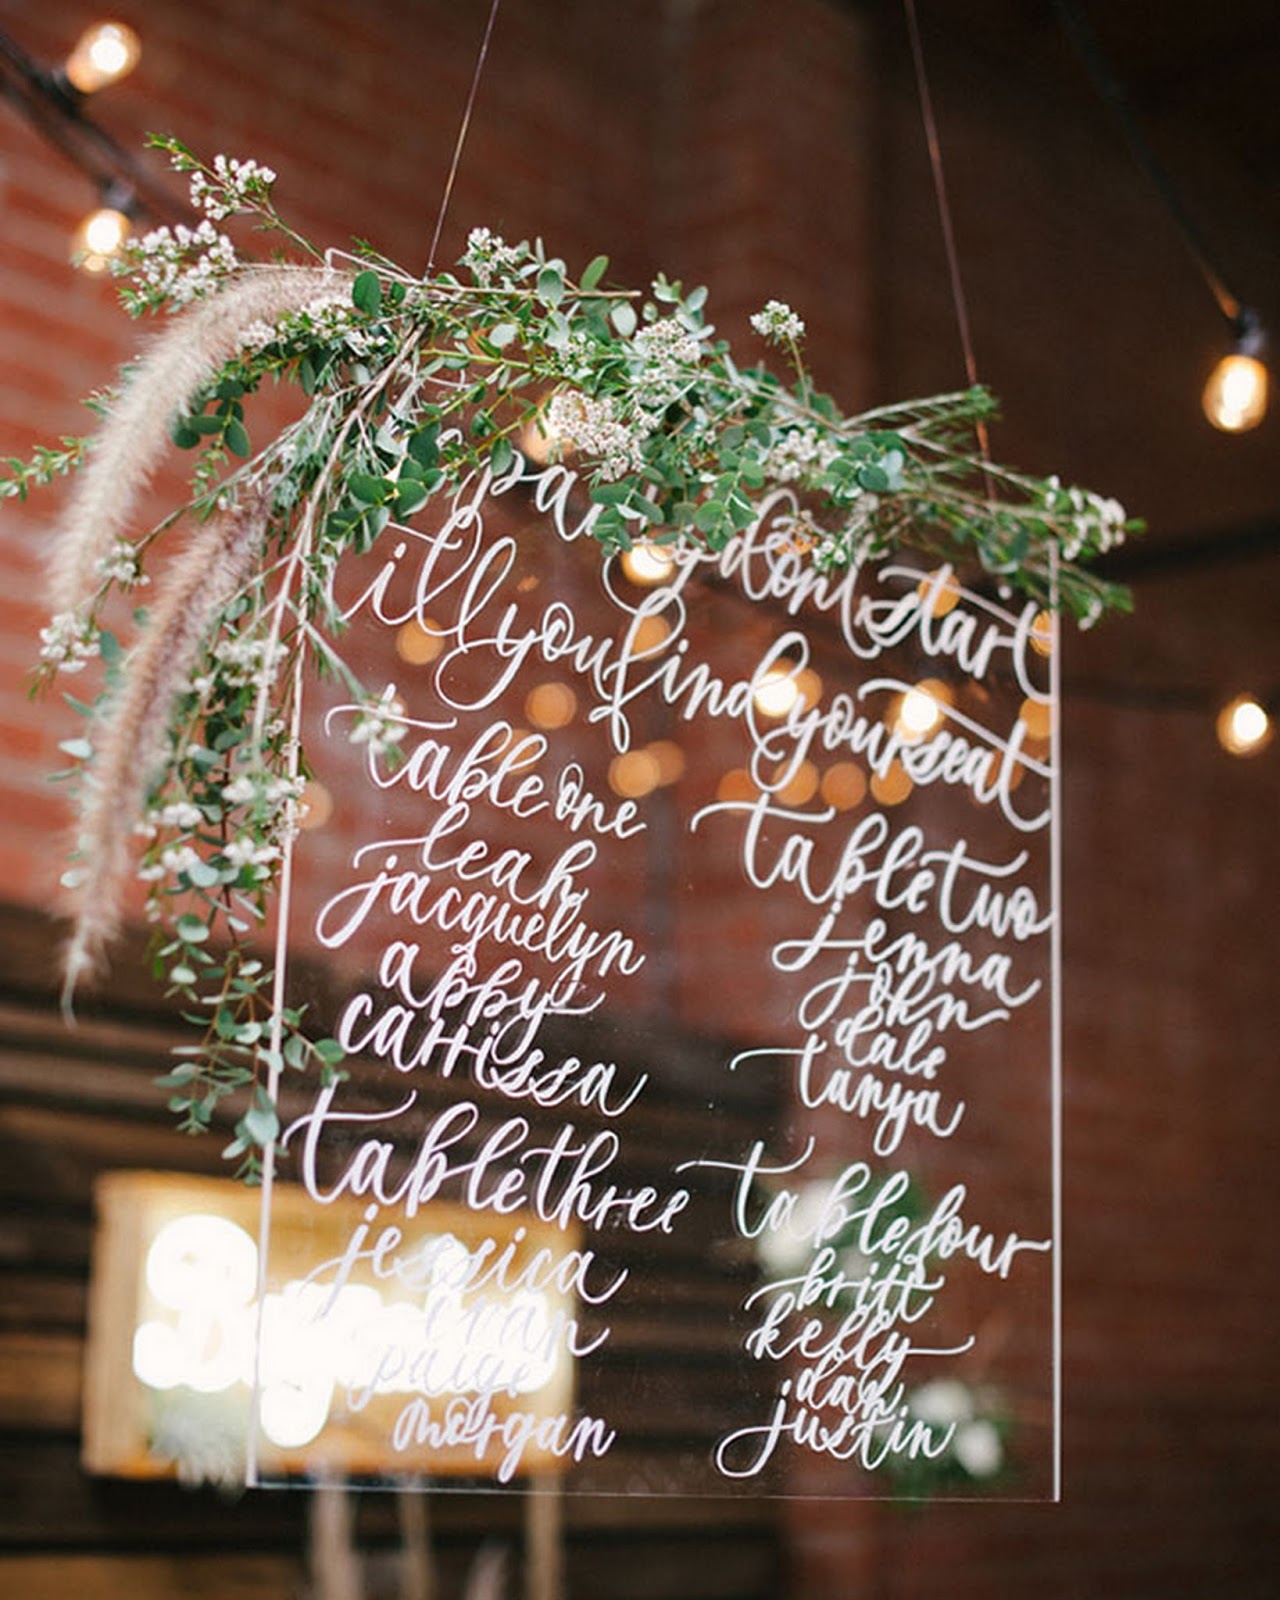 party dont start
till you find your seat
table one
leah
jacquelyn
abby
carrissa
table two
jenna
john
dale
tanya
table three
jessica
paige
morgan
table four
britt
kelly
dan
justin